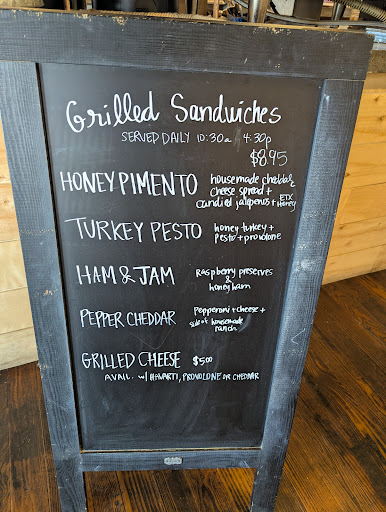 Grilled Sandwiches
SERVED DAILY 10:30a 4:30p
$8.95
HONEY PIMENTO housemade cheddar
cheese spread +
candied jalapenos + ETX honey
TURKEY PESTO honey turkey +
pesto + provolone
HAM & JAM Raspberry preserves
&
honey ham
PEPPER CHEDDAR Pepperoni + cheese +
side of housemade
ranch
GRILLED CHEESE $5.00
AVAIL. w/ HAVARTI, PROVOLONE OR CHEDDAR